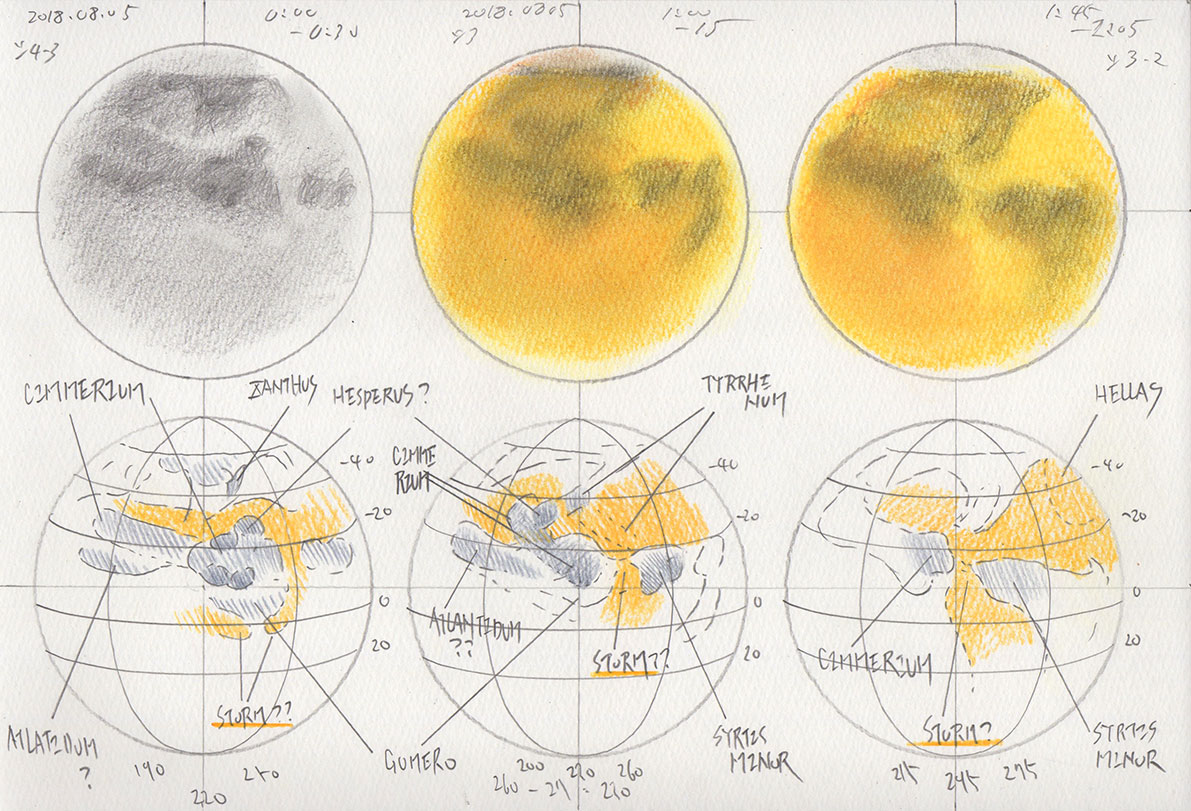 2018.08.05
0:00
-0:30
2018.08.05
1:00
-15
1:45
3-2
CIMMERIUM
XANTHUS
HESPERUS?
TYRRHE
NUM
HELLAS
CIMME
RIUM
-40
-20
0
20
-40
-20
0
20
-40
-20
0
20
ATLANTIDUM
??
STORM??
STORM??
CIMMERIUM
STORM?
ATLATIDUM
?
GOMERO
SYRTIS
MINOR
SYRTIS
MINOR
190
220
250
200
260
215
245
275